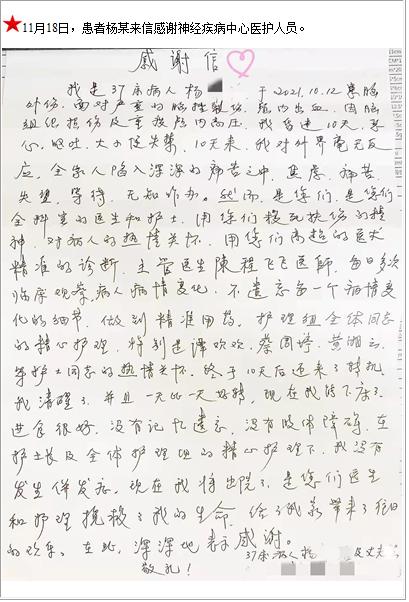 11月18日，患者杨某来信感谢神经疾病中心医护人员。
感谢信
我是37床病人杨 于2021.10.12来脑
外伤，面对严重的脑挫裂伤，颅内出血，因脑
组织损伤及重按颅内高压，我昏迷10天，恶
心，呕吐，大小便失禁，10天来，我对外界毫无反
应，全家人陷入深深的痛苦之中，焦虑，痛苦
失望，等待，无知咋办。然而，是您们，是您们
全科室的医生和护士，用您们救死扶伤的精
神，对病人的热情关怀，用您们高超的医术
精准的诊断，主管医生陈程飞飞医师，每日多次
临床观察病人病情变化，不遗忘每一个病情变
化的细节，做到精准用药，护理组全体同志
的精心护理，特别是谭欢欢，蔡周婷，黄湘云，
等护士同志的热情关怀，终于10天后迎来了转机
我清醒了，并且一天比一天好转，现在我能下床了
进食很好，没有记忆遗忘，没有肢体障碍，在
护士长及全体护理组的精心护理下，我没有
发生併发症，现在我将出院了，是您们医生
和护理挽救了我的生命，给了我家带来了往日
的欢乐。在此，深深地表示感谢。
敬礼！
37床病人杨 及丈夫